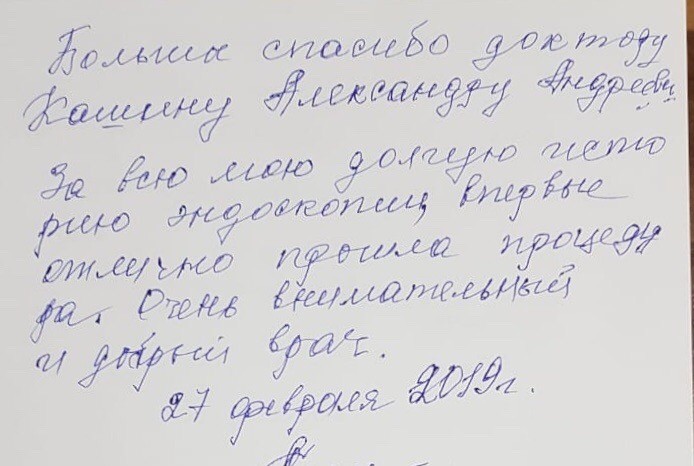 Больше спасибо доктору
Кашину Александру Андреевич
За всю мою долгую исто
рию эндоскопии, впервые
отлично прошла процеду
ра. Очень внимательный
и добрый врач.
27 февраля 2019г.